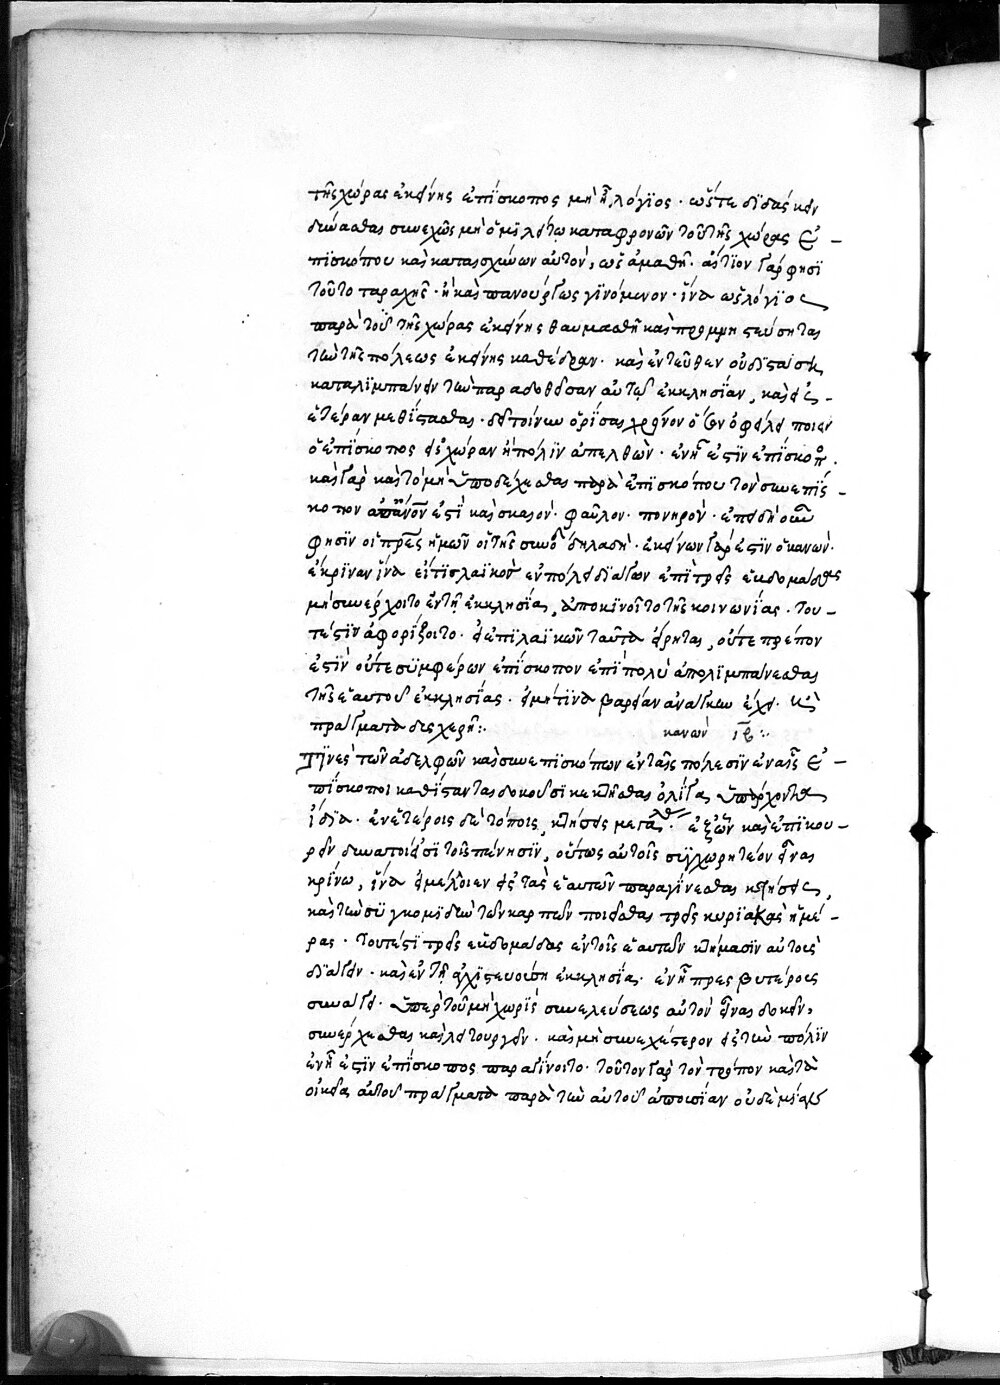 τῆς χώρας ἐκείνης ἐπίσκοπος μὴ ᾖ λόγιος· ὥστε διδάσκειν
δύνασθαι συνεχῶς μὴ ὁμιλείτω καταφρονῶν τοῦ τῆς χώρας ἐ-
πισκόπου καὶ καταισχύνων αὐτὸν, ὡς ἀμαθῆ· αἴτιον γάρ φησι
τοῦτο ταραχῆς· ἢ καὶ πανούργως γινόμενον· ἵνα ὡς λόγιος
παρὰ τοῦ τῆς χώρας ἐκείνης θαυμασθῇ καὶ προμνηστεύσηται
τὼ τῆς πόλεως ἐκείνης καθέδραν· καὶ ἐντεῦθεν οὐ διστάση
καταλιμπάνειν τὼ παραδοθεῖσαν αὐτῷ ἐκκλησίαν, καὶ εἰς
ἑτέραν μεθίστασθαι· δεῖ τοίνυν ὁρίσαι χρόνον ὅσον ὀφείλει ποιεῖν
ὁ ἐπίσκοπος εἰς χώραν ἢ πόλιν ἀπελθών· ἐν ᾗ ἐστὶν ἐπίσκοπ.
καὶ γὰρ καὶ τὸ μὴ ὑποδέχεσθαι παρὰ ἐπισκόπου τὸν συνεπίσ-
κοπον ἀπάνθρωπον ἐστὶ καὶ σκαιόν· φαῦλον· πονηρόν· ἐπειδὴ οὖν
φησὶν οἱ πρες ἡμῶν οἱ τῆς συνοδ δηλαδὴ· ἐκείνων γάρ ἐστὶν ὁ κανών·
ἔκριναν ἵνα εἴ τις λαϊκὸς ἐν πόλει διάγων ἐπὶ τρεῖς ἑβδομάδας
μὴ συνέρχοιτο ἐν τῇ ἐκκλησίᾳ, ἀποκινοῖτο τῆς κοινωνίας· του-
τέστιν ἀφορίζοιτο· εἰ ἐπὶ λαϊκῶν ταῦτα εἴρηται, οὔτε πρέπον
ἐστὶν οὔτε συμφέρων ἐπίσκοπον ἐπὶ πολὺ ἀπολιμπάνεσθαι
τῆς ἑαυτοῦ ἐκκλησίας· εἰ μή τινα βαρεῖαν ἀνάγκην ἔχει· καὶ
πράγματα δυσχερῆ:· κανὼν ιβ:·
Τινὲς τῶν ἀδελφῶν καὶ συνεπισκόπων ἐν ταῖς πόλεσιν ἐν αἷς ἐ-
πίσκοποι καθίστανται δοκοῦσι κεκτῆσθαι ὀλίγα ὑπάρχοντα
ἴδια· ἐν ἑτέροις δὲ τόποις, κτήσεις μεγάλας· ἐξ ὧν καὶ ἐπικου-
ρεῖν δυνατοί εἰσι τοῖς πένησιν, οὕτως αὐτοῖς συγχωρητέον εἶναι
κρίνω, ἵνα εἰ μέλλοιεν εἰς τὰς ἑαυτῶν παραγίνεσθαι κτήσεις,
καὶ τὼ συγκομιδὼ τῶν καρπῶν ποιεῖσθαι τρεῖς κυριακὰς ἡμέ-
ρας· τουτέστι τρεῖς ἑβδομάδας ἐν τοῖς ἑαυτῶν κτήμασιν αὐτοὺς
διάγειν· καὶ ἐν τῇ ἀγχιστευούσῃ ἐκκλησίᾳ· ἐν ᾗ πρεσβύτερος
συνάγει· ὑπὲρ τοῦ μὴ χωρὶς συνελεύσεως αὐτὸν εἶναι δοκεῖν,
συνέρχεσθαι καὶ λειτουργεῖν· καὶ μὴ συνεχέστερον εἰς τὼ πόλιν
ἐν ᾗ ἐστὶν ἐπίσκοπος παραγίνοιτο· τοῦτον γὰρ τὸν τρόπον καὶ τὰ
οἰκεῖα αὐτοῦ πράγματα παρὰ τὼ αὐτοῦ ἀπουσίαν οὐδεμίαν